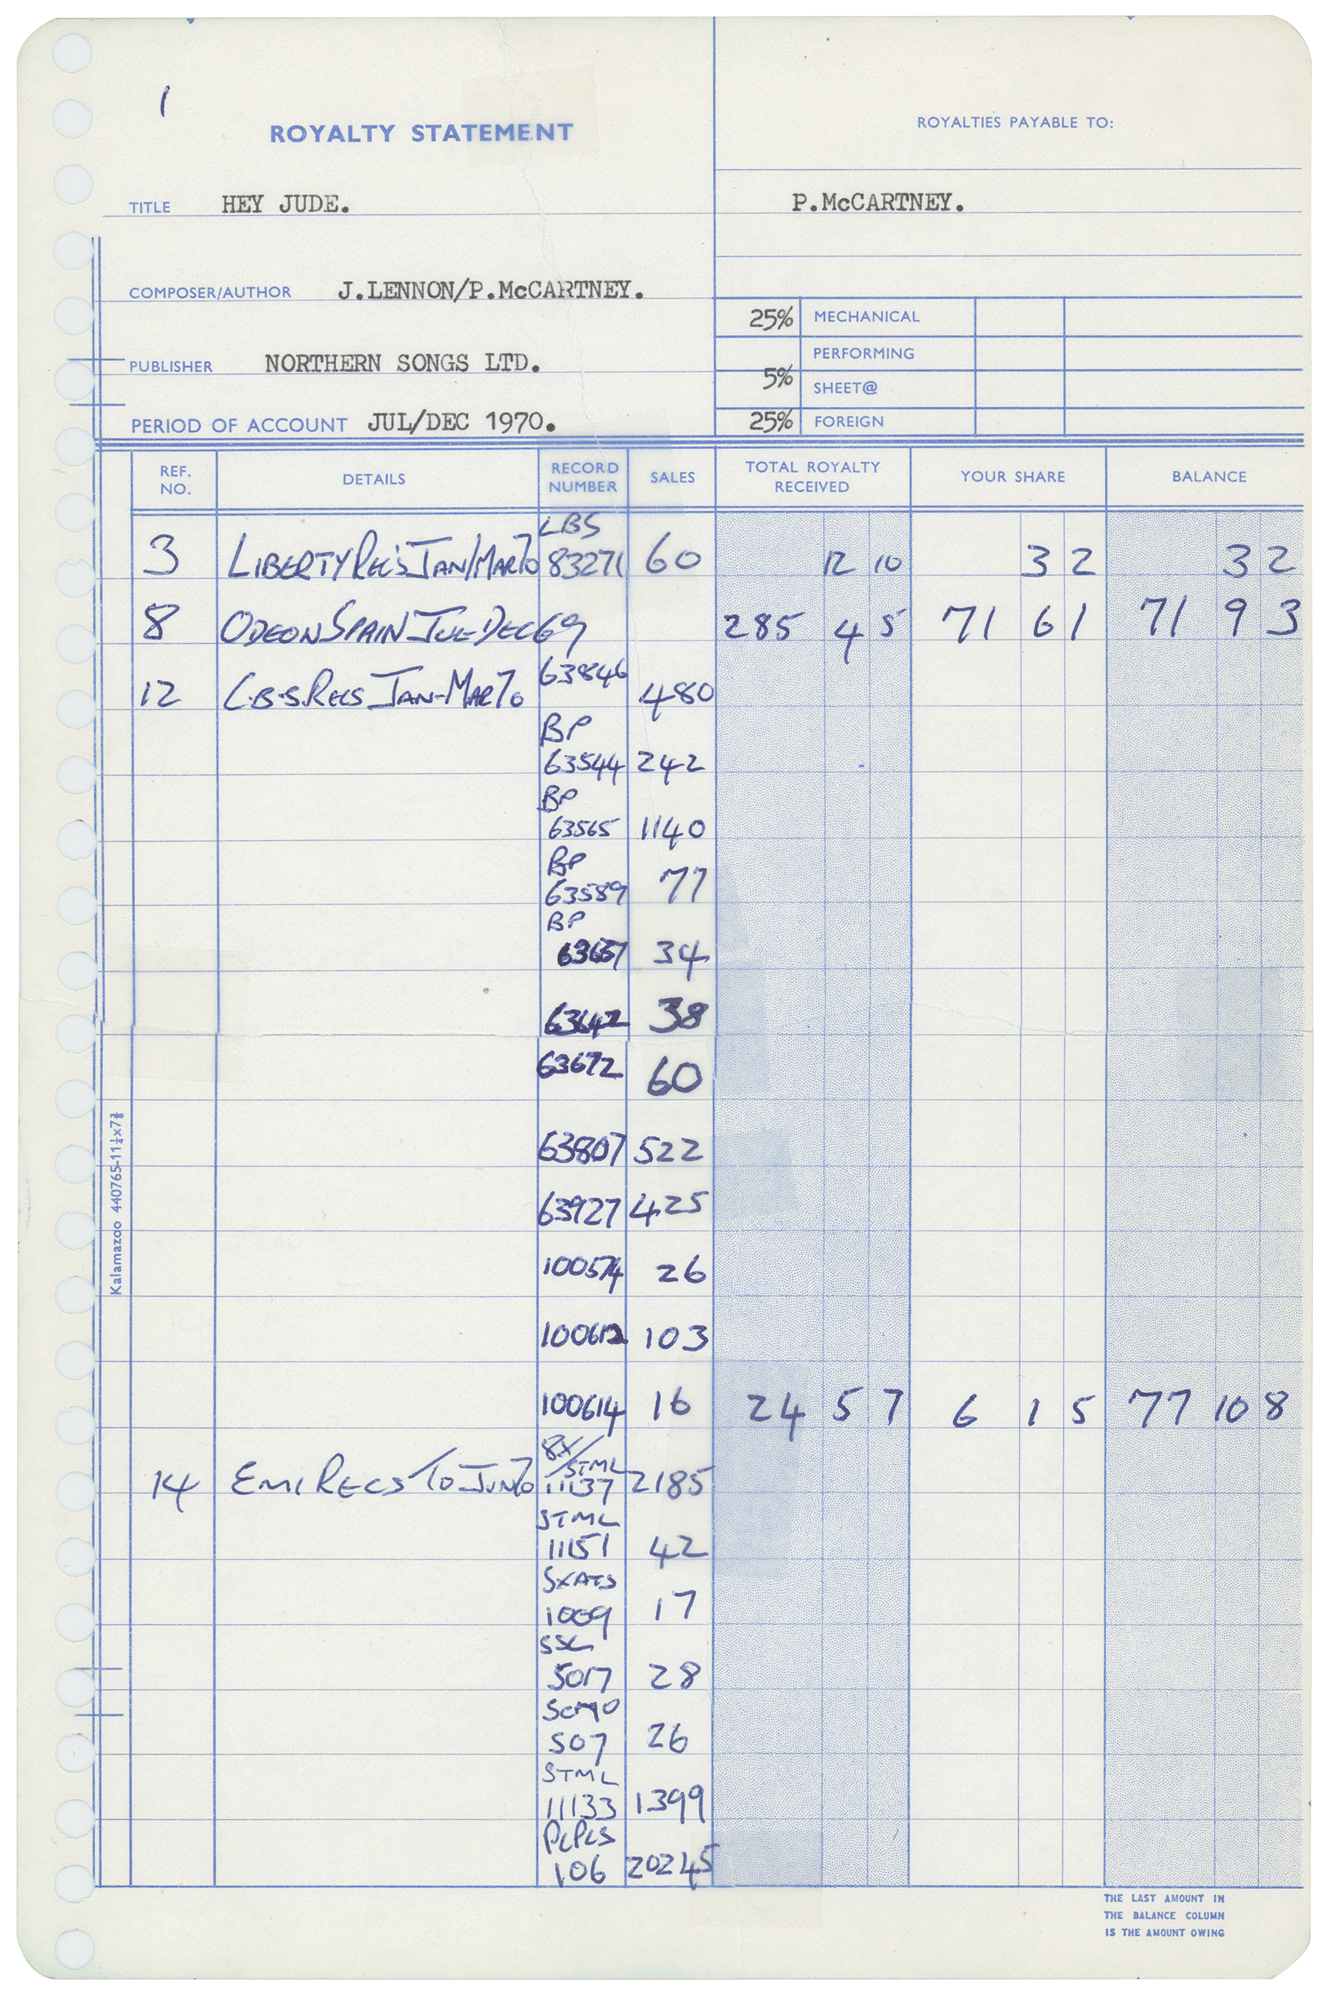 1
ROYALTY STATEMENT
ROYALTIES PAYABLE TO:
TITLE HEY JUDE.
P.McCARTNEY.
COMPOSER/AUTHOR J.LENNON/P.McCARTNEY.
25% MECHANICAL
PERFORMING
PUBLISHER NORTHERN SONGS LTD.
5% SHEET@
PERIOD OF ACCOUNT JUL/DEC 1970.
25% FOREIGN
REF. NO. DETAILS RECORD NUMBER SALES TOTAL ROYALTY RECEIVED YOUR SHARE BALANCE
LBS
3 LIBERTY RECS JAN/MAR 70 83271 60 12 10 3 2 3 2
8 ODEON SPAIN JUL-DEC 69 285 4 5 71 6 1 71 9 3
12 C.B.S. RECS JAN-MAR 70 63846 480
BP
63544 242
BP
63565 1140
BP
63589 77
BP
63657 34
63642 38
63672 60
63807 522
63927 425
100574 26
100612 103
100614 16 24 5 7 6 1 5 77 10 8
8X/STML
14 EMI RECS TO JUN 70 11137 2185
STML
11151 42
SXATS
1009 17
SSL
5017 28
507 26
STML
11133 1399
PCPCS
106 20245
Kalamazoo 440765-11¼x7⅞
THE LAST AMOUNT IN
THE BALANCE COLUMN
IS THE AMOUNT OWING